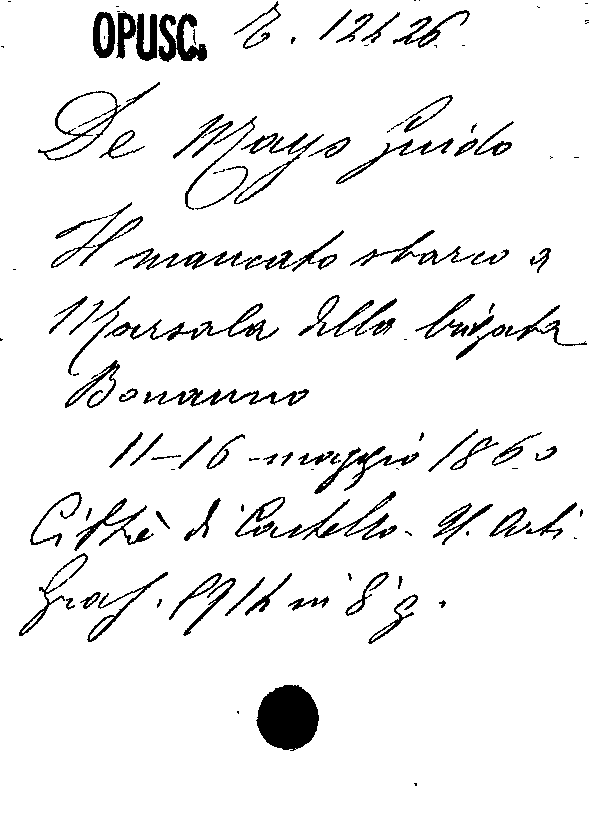 OPUSC. E. 12426
De Mayo Guido
Il mancato sbarco a
Marsala della brigata
Bonanno
11-16 maggio 1860
Città di Castello. U. Arti
Graf. 1914 in 8° g.